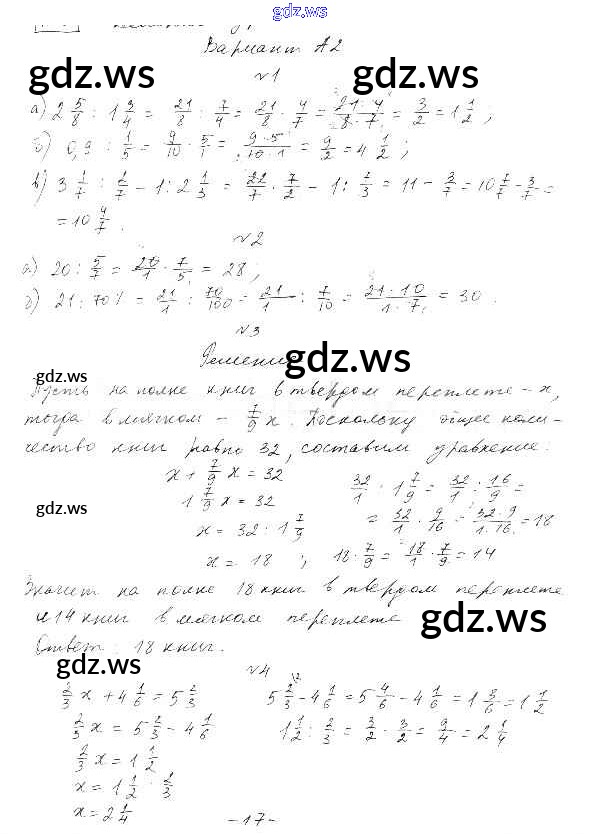 gdz.ws
Вариант А2
gdz.ws gdz.ws
№1
а) 2 5/8 : 1 3/4 = 21/8 : 7/4 = 21/8 · 4/7 = 21·4/8·7 = 3/2 = 1 1/2 ;
б) 0,9 : 1/5 = 9/10 · 5/1 = 9·5/10·1 = 9/2 = 4 1/2 ;
в) 3 1/7 : 2/7 - 1 : 2 1/3 = 22/7 · 7/2 - 1 : 7/3 = 11 - 3/7 = 10 7/7 - 3/7 =
= 10 4/7 .
№2
а) 20 : 5/7 = 20/1 · 7/5 = 28 ;
б) 21 : 70% = 21/1 : 70/100 = 21/1 : 7/10 = 21·10/1·7 = 30 .
№3
Решение
gdz.ws
gdz.ws
Пусть на полке книг в твердом переплете - x,
тогда в мягком - 7/9 x. Поскольку общее коли-
чество книг равно 32, составим уравнение:
x + 7/9 x = 32 32/1 : 1 7/9 = 32/1 : 16/9 =
1 7/9 x = 32 = 32/1 · 9/16 = 32·9/1·16 = 18
gdz.ws
x = 32 : 1 7/9
x = 18 ; 18 · 7/9 = 18/1 · 7/9 = 14
Значит на полке 18 книг в твердом переплете
и 14 книг в мягком переплете
gdz.ws
Ответ: 18 книг.
gdz.ws
№4
2/3 x + 4 1/6 = 5 2/3 5 2/3 - 4 1/6 = 5 4/6 - 4 1/6 = 1 3/6 = 1 1/2
2/3 x = 5 2/3 - 4 1/6 1 1/2 : 2/3 = 3/2 · 3/2 = 9/4 = 2 1/4
2/3 x = 1 1/2
x = 1 1/2 : 2/3
x = 2 1/4
- 17 -